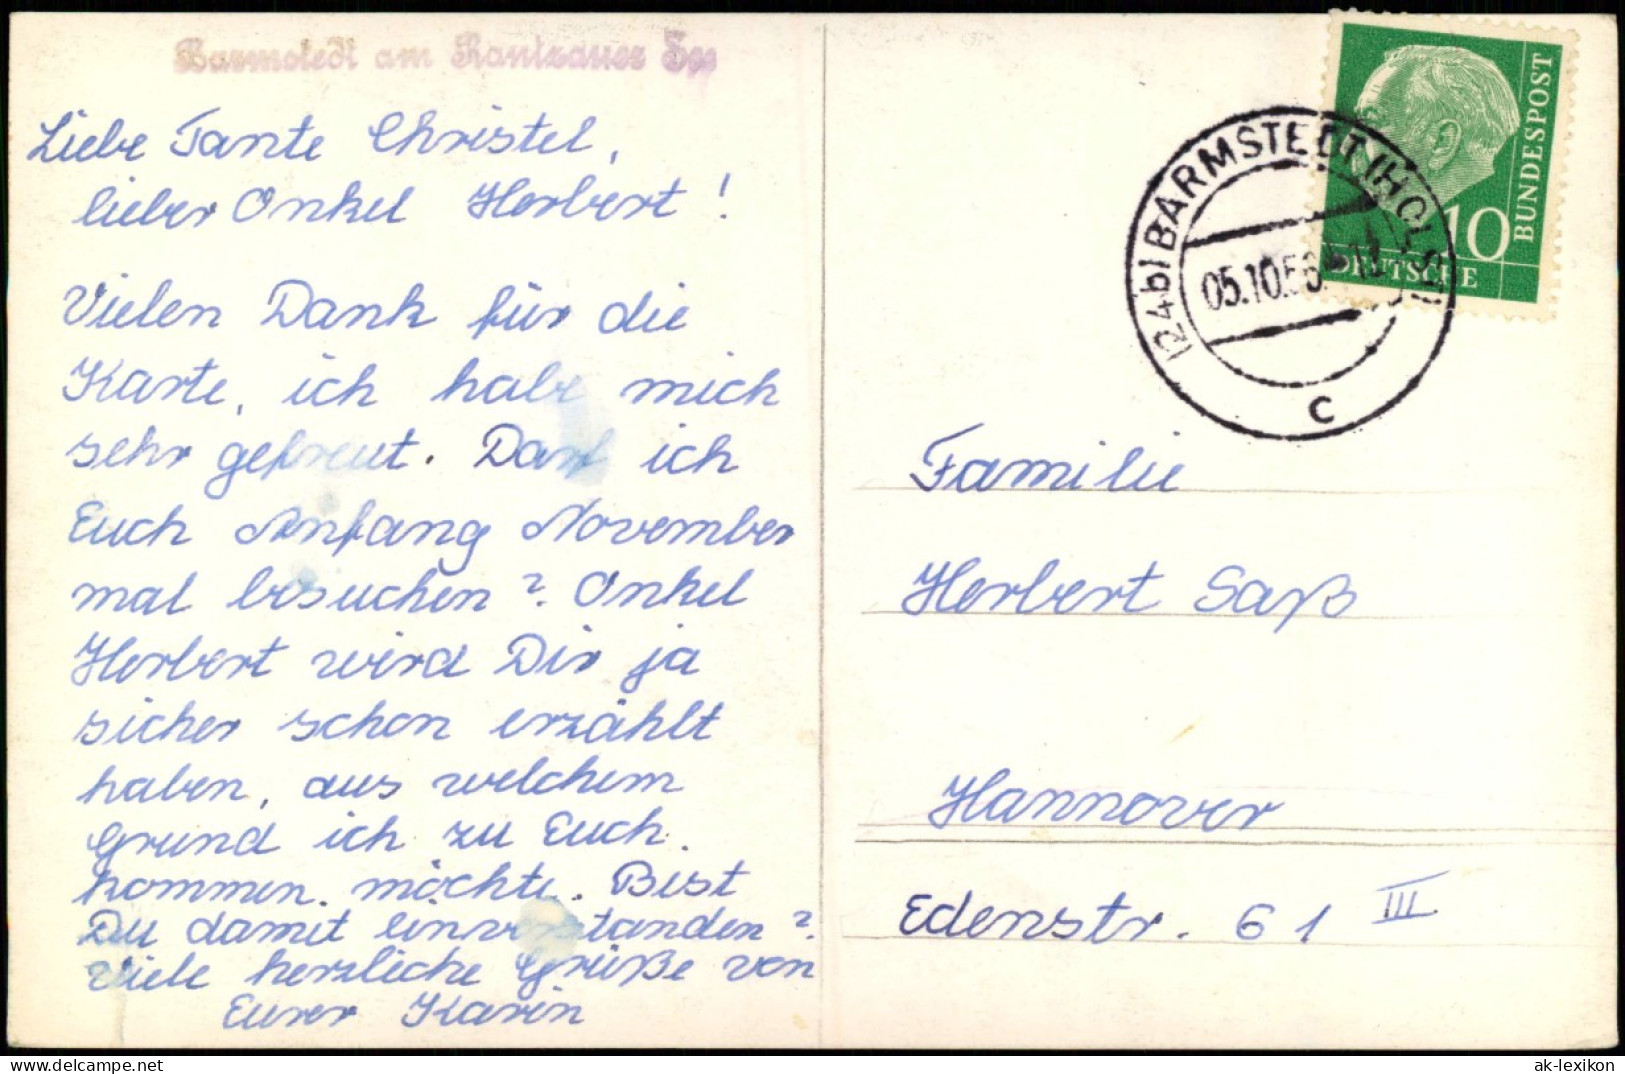 Barmstedt am Rantzauer See
Liebe Tante Christel,
lieber Onkel Herbert!
Vielen Dank für die
Karte, ich habe mich
sehr gefreut. Darf ich
Euch Anfang November
mal besuchen? Onkel
Herbert wird Dir ja
sicher schon erzählt
haben, aus welchem
Grund ich zu Euch
kommen möchte. Bist
Du damit einverstanden?
Viele herzliche Grüße von
Eurer Karin
10
DEUTSCHE
BUNDESPOST
(24b) BARMSTEDT (HOLST)
05.10.56
c
Familie
Herbert Saß
Hannover
Edenstr. 61 III
ak-lexikon.de
© ak-lexikon